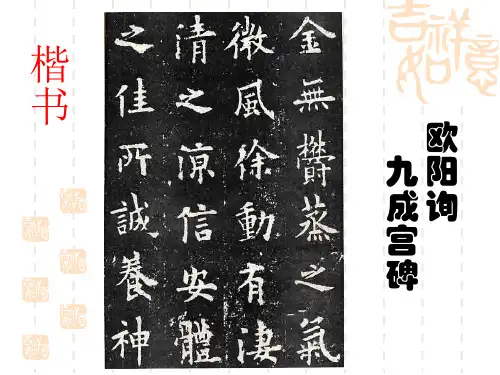 楷书
金無欝蒸之氣
微風徐動有淒
清之涼信安體
之佳所誠養神
吉祥如意
欧阳询
九成宫碑